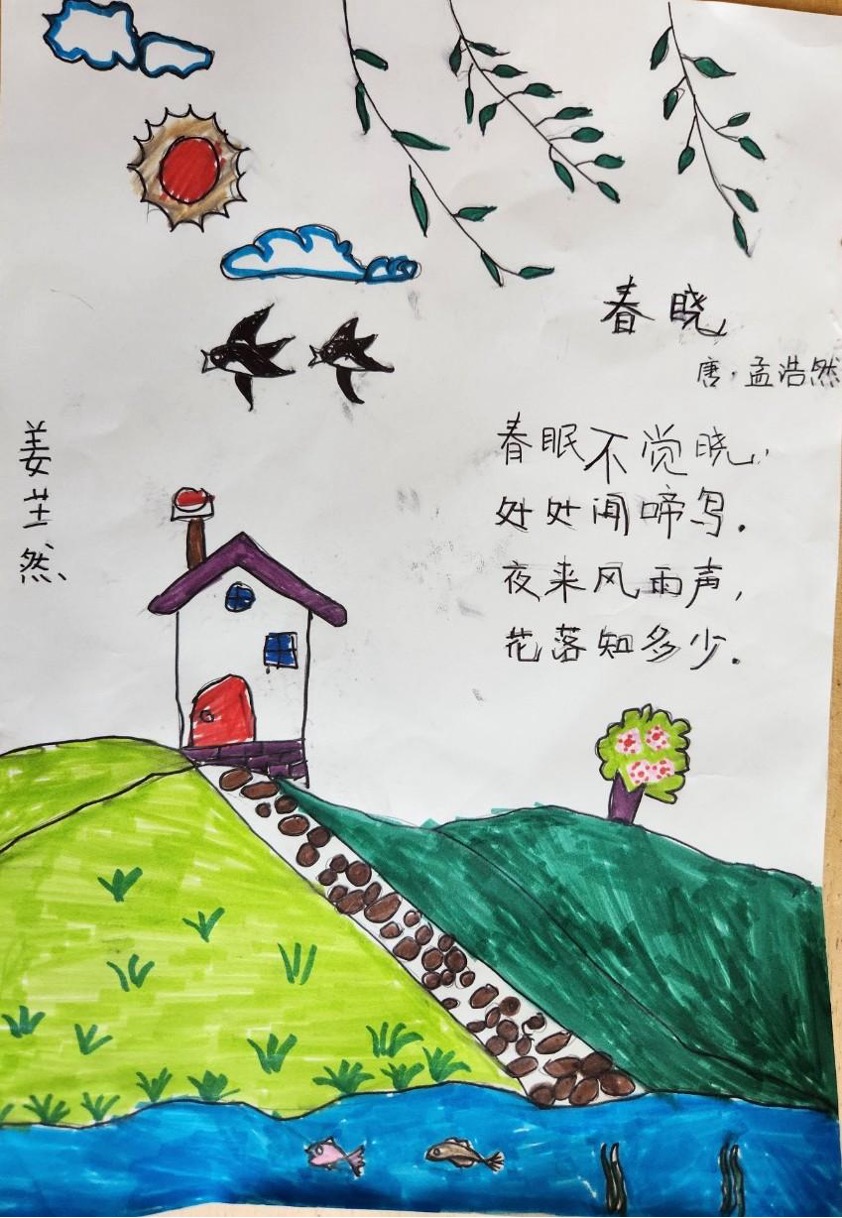 春晓
唐·孟浩然
春眠不觉晓,
处处闻啼鸟.
夜来风雨声,
花落知多少.
姜芏然